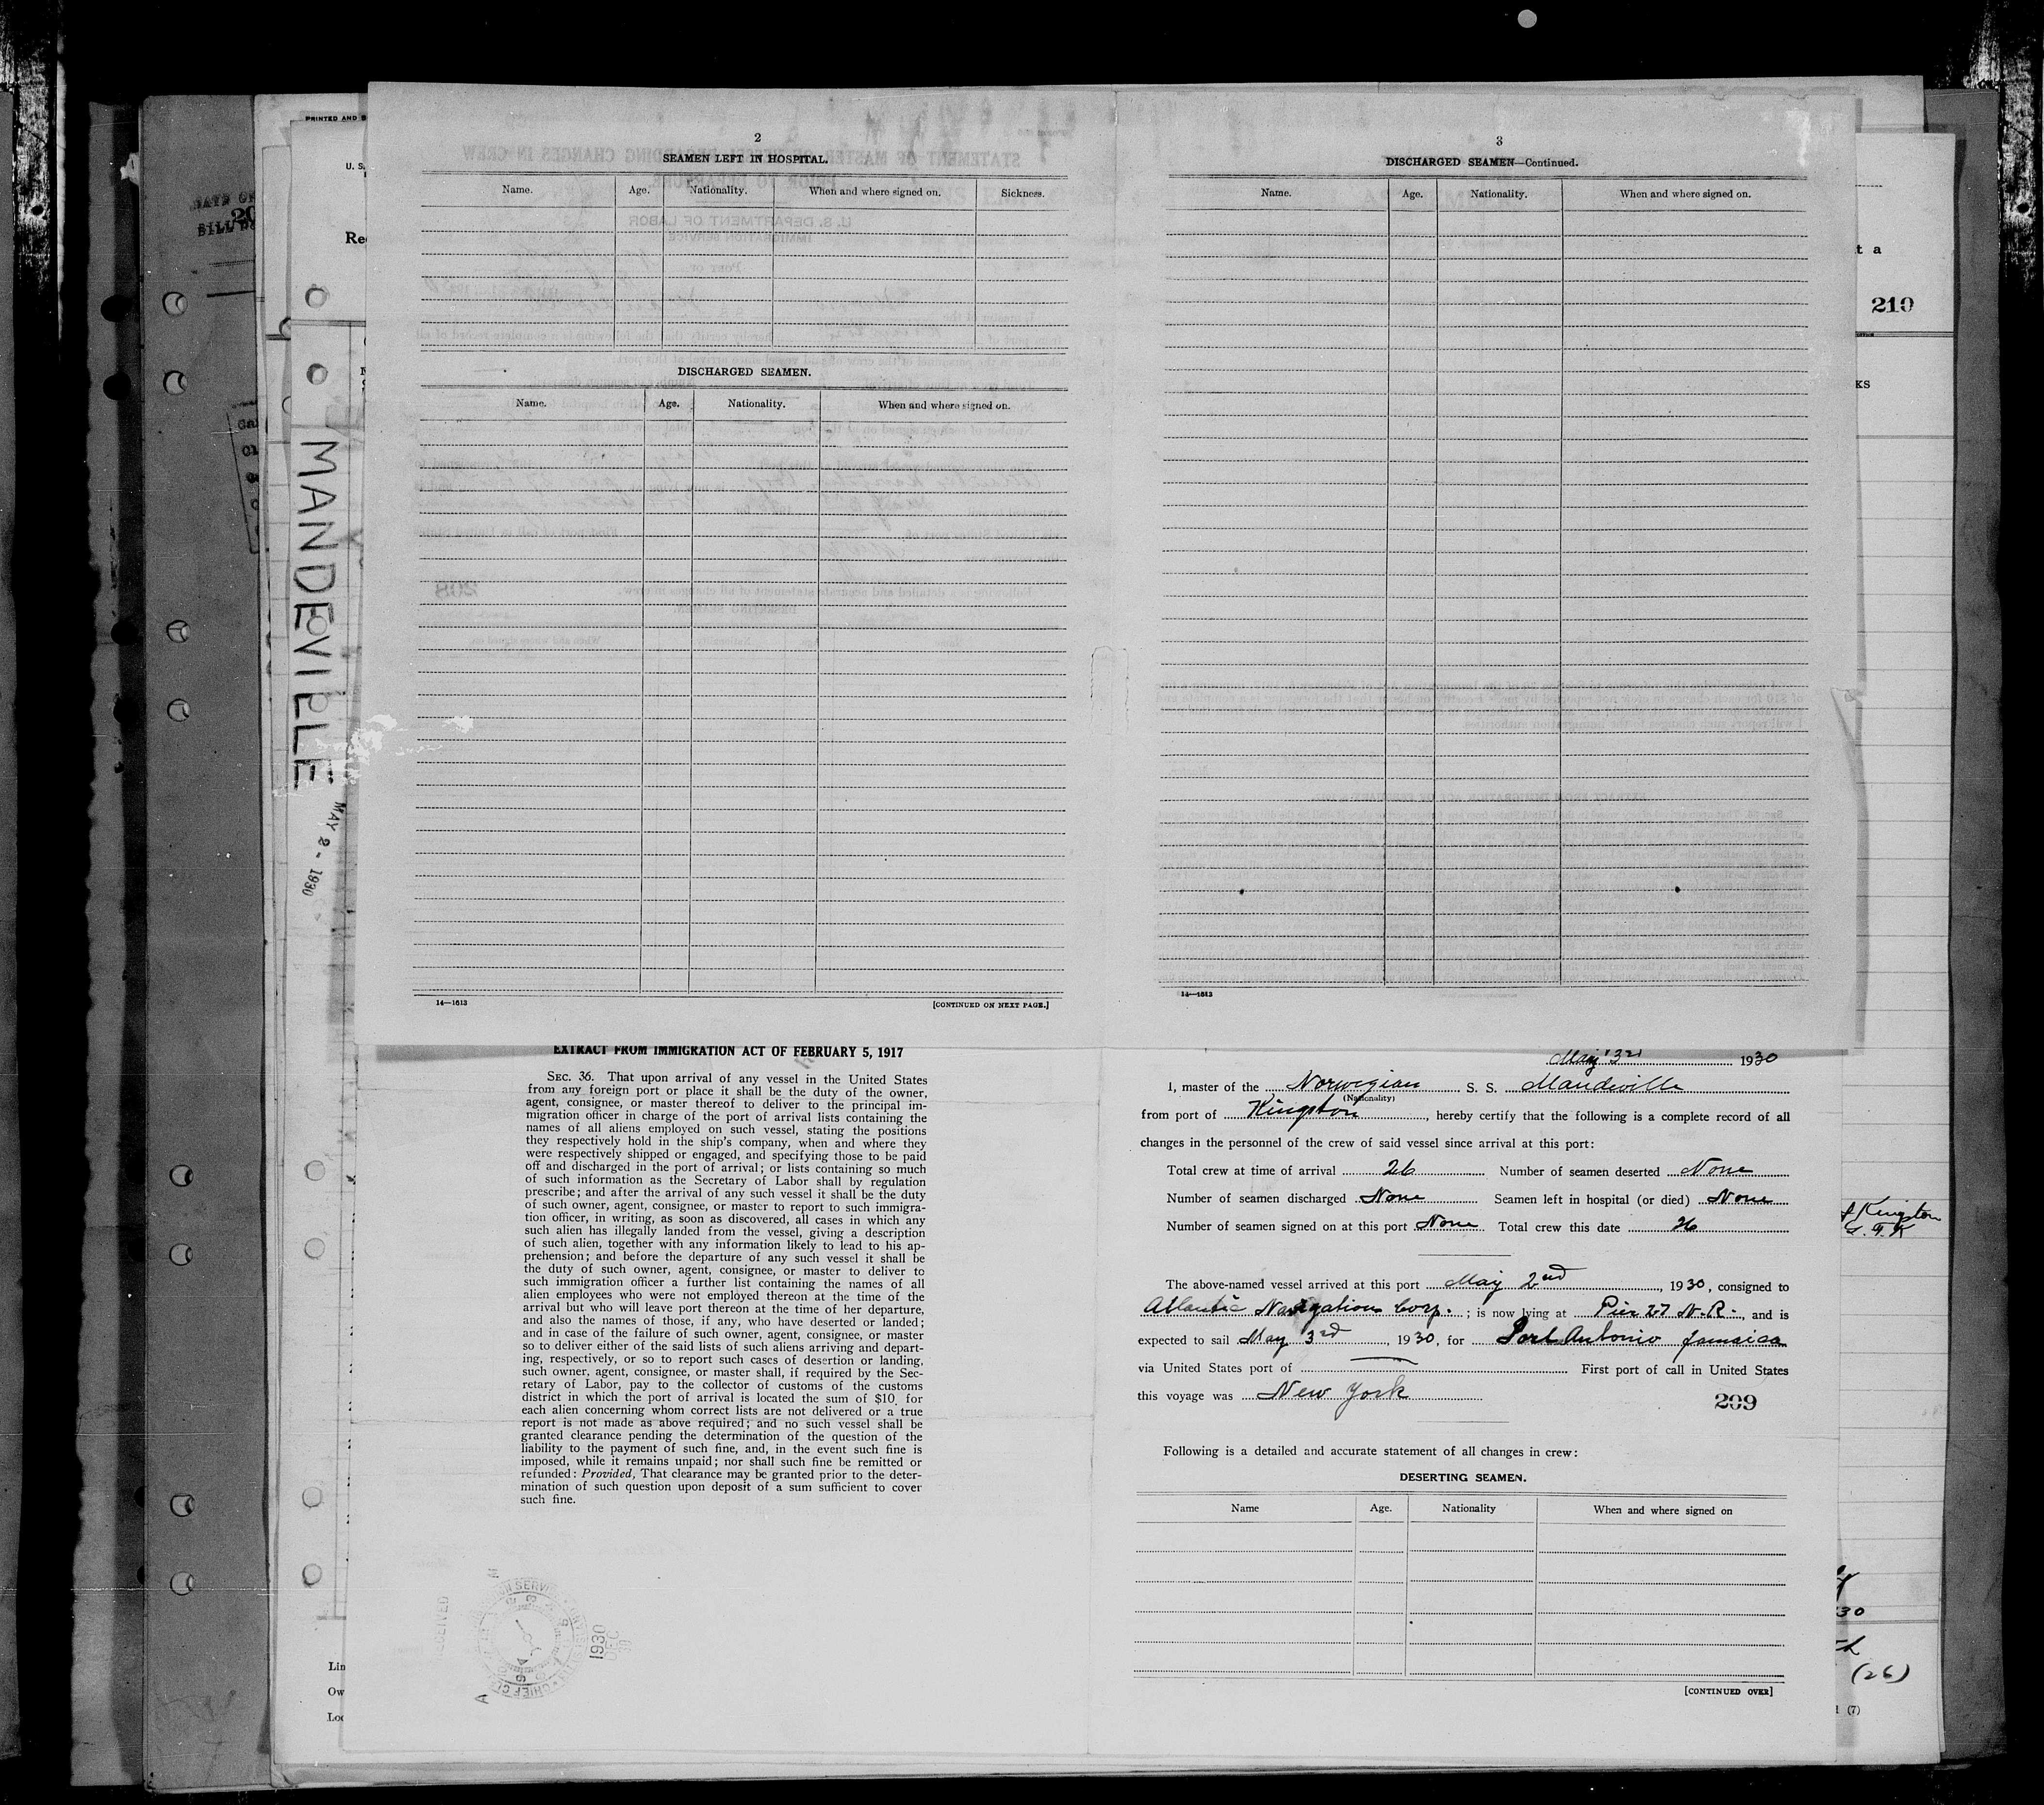 PRINTED AND
U. S.
Re
MANDEVILLE
MAY 2 - 1930
2
SEAMEN LEFT IN HOSPITAL.
Name. Age. Nationality. When and where signed on. Sickness.
DISCHARGED SEAMEN.
Name. Age. Nationality. When and where signed on.
14—1613 [CONTINUED ON NEXT PAGE.]
3
DISCHARGED SEAMEN—Continued.
Name. Age. Nationality. When and where signed on.
14—1613
t a
210
KS
EXTRACT FROM IMMIGRATION ACT OF FEBRUARY 5, 1917
SEC. 36. That upon arrival of any vessel in the United States
from any foreign port or place it shall be the duty of the owner,
agent, consignee, or master thereof to deliver to the principal im-
migration officer in charge of the port of arrival lists containing the
names of all aliens employed on such vessel, stating the positions
they respectively hold in the ship's company, when and where they
were respectively shipped or engaged, and specifying those to be paid
off and discharged in the port of arrival; or lists containing so much
of such information as the Secretary of Labor shall by regulation
prescribe; and after the arrival of any such vessel it shall be the duty
of such owner, agent, consignee, or master to report to such immigra-
tion officer, in writing, as soon as discovered, all cases in which any
such alien has illegally landed from the vessel, giving a description
of such alien, together with any information likely to lead to his ap-
prehension; and before the departure of any such vessel it shall be
the duty of such owner, agent, consignee, or master to deliver to
such immigration officer a further list containing the names of all
alien employees who were not employed thereon at the time of the
arrival but who will leave port thereon at the time of her departure,
and also the names of those, if any, who have deserted or landed;
and in case of the failure of such owner, agent, consignee, or master
so to deliver either of the said lists of such aliens arriving and depart-
ing, respectively, or so to report such cases of desertion or landing,
such owner, agent, consignee, or master shall, if required by the Sec-
retary of Labor, pay to the collector of customs of the customs
district in which the port of arrival is located the sum of $10 for
each alien concerning whom correct lists are not delivered or a true
report is not made as above required; and no such vessel shall be
granted clearance pending the determination of the question of the
liability to the payment of such fine, and, in the event such fine is
imposed, while it remains unpaid; nor shall such fine be remitted or
refunded: Provided, That clearance may be granted prior to the deter-
mination of such question upon deposit of a sum sufficient to cover
such fine.
1930
DEC
Lin
Ow
Loc
May 3rd 1930
I, master of the Norwegian S. S. Mandeville
(Nationality)
from port of Kingston, hereby certify that the following is a complete record of all
changes in the personnel of the crew of said vessel since arrival at this port:
Total crew at time of arrival 26 Number of seamen deserted None
Number of seamen discharged None Seamen left in hospital (or died) None
Number of seamen signed on at this port None Total crew this date 26
The above-named vessel arrived at this port May 2nd, 1930, consigned to
Atlantic Navigation Corp.; is now lying at Pier 27 N.R., and is
expected to sail May 3rd, 1930, for Port Antonio Jamaica
via United States port of — First port of call in United States
this voyage was New York
209
Following is a detailed and accurate statement of all changes in crew:
DESERTING SEAMEN.
Name Age. Nationality When and where signed on
[CONTINUED OVER]
Kingston
30
(26)
(7)